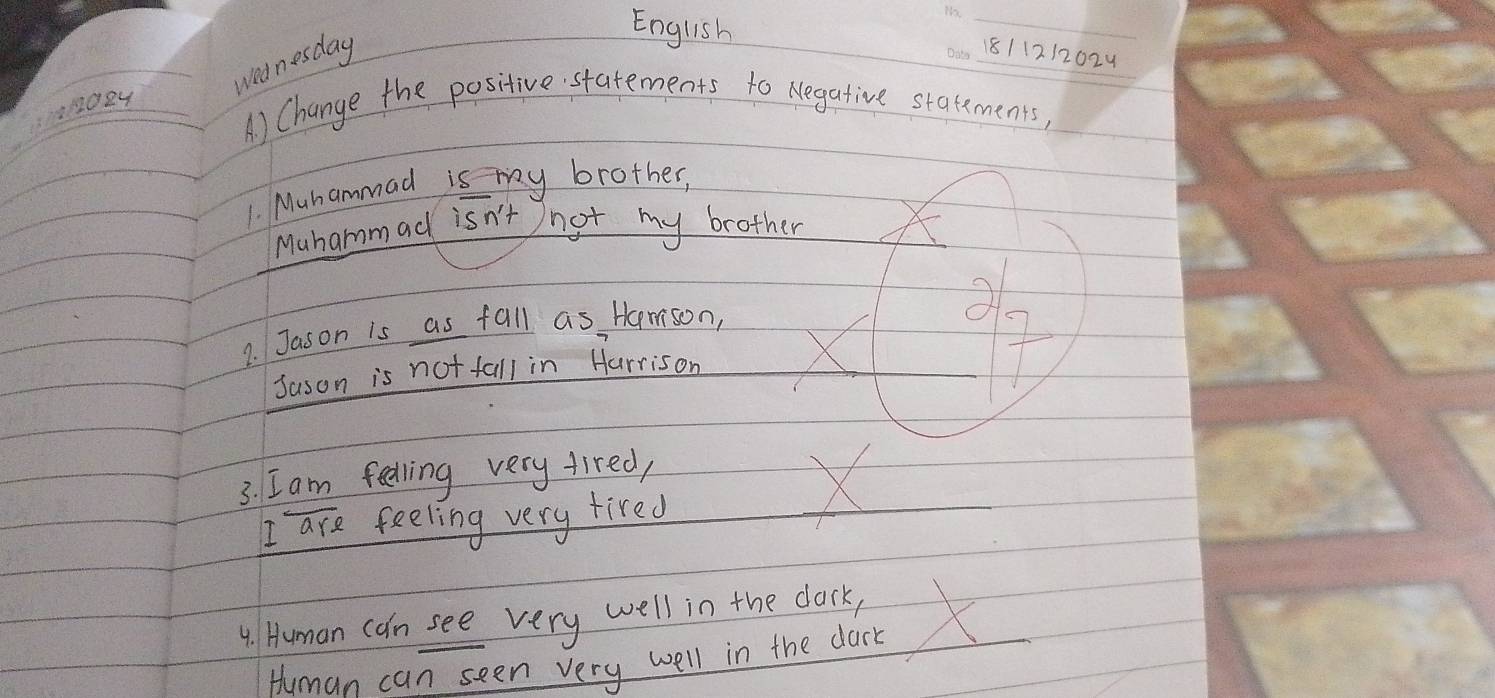 English
No.
Wednesday
Date 18/12/2024
A.) Change the positive statements to Negative statements,
1. Muhammad is my brother,
Muhammad isn't not my brother
2. Jason is as tall as Harrison,
Jason is not tall in Harrison
2/7
3. I am feeling very tired,
I are feeling very tired
4. Human can see very well in the dark,
Human can seen very well in the dark